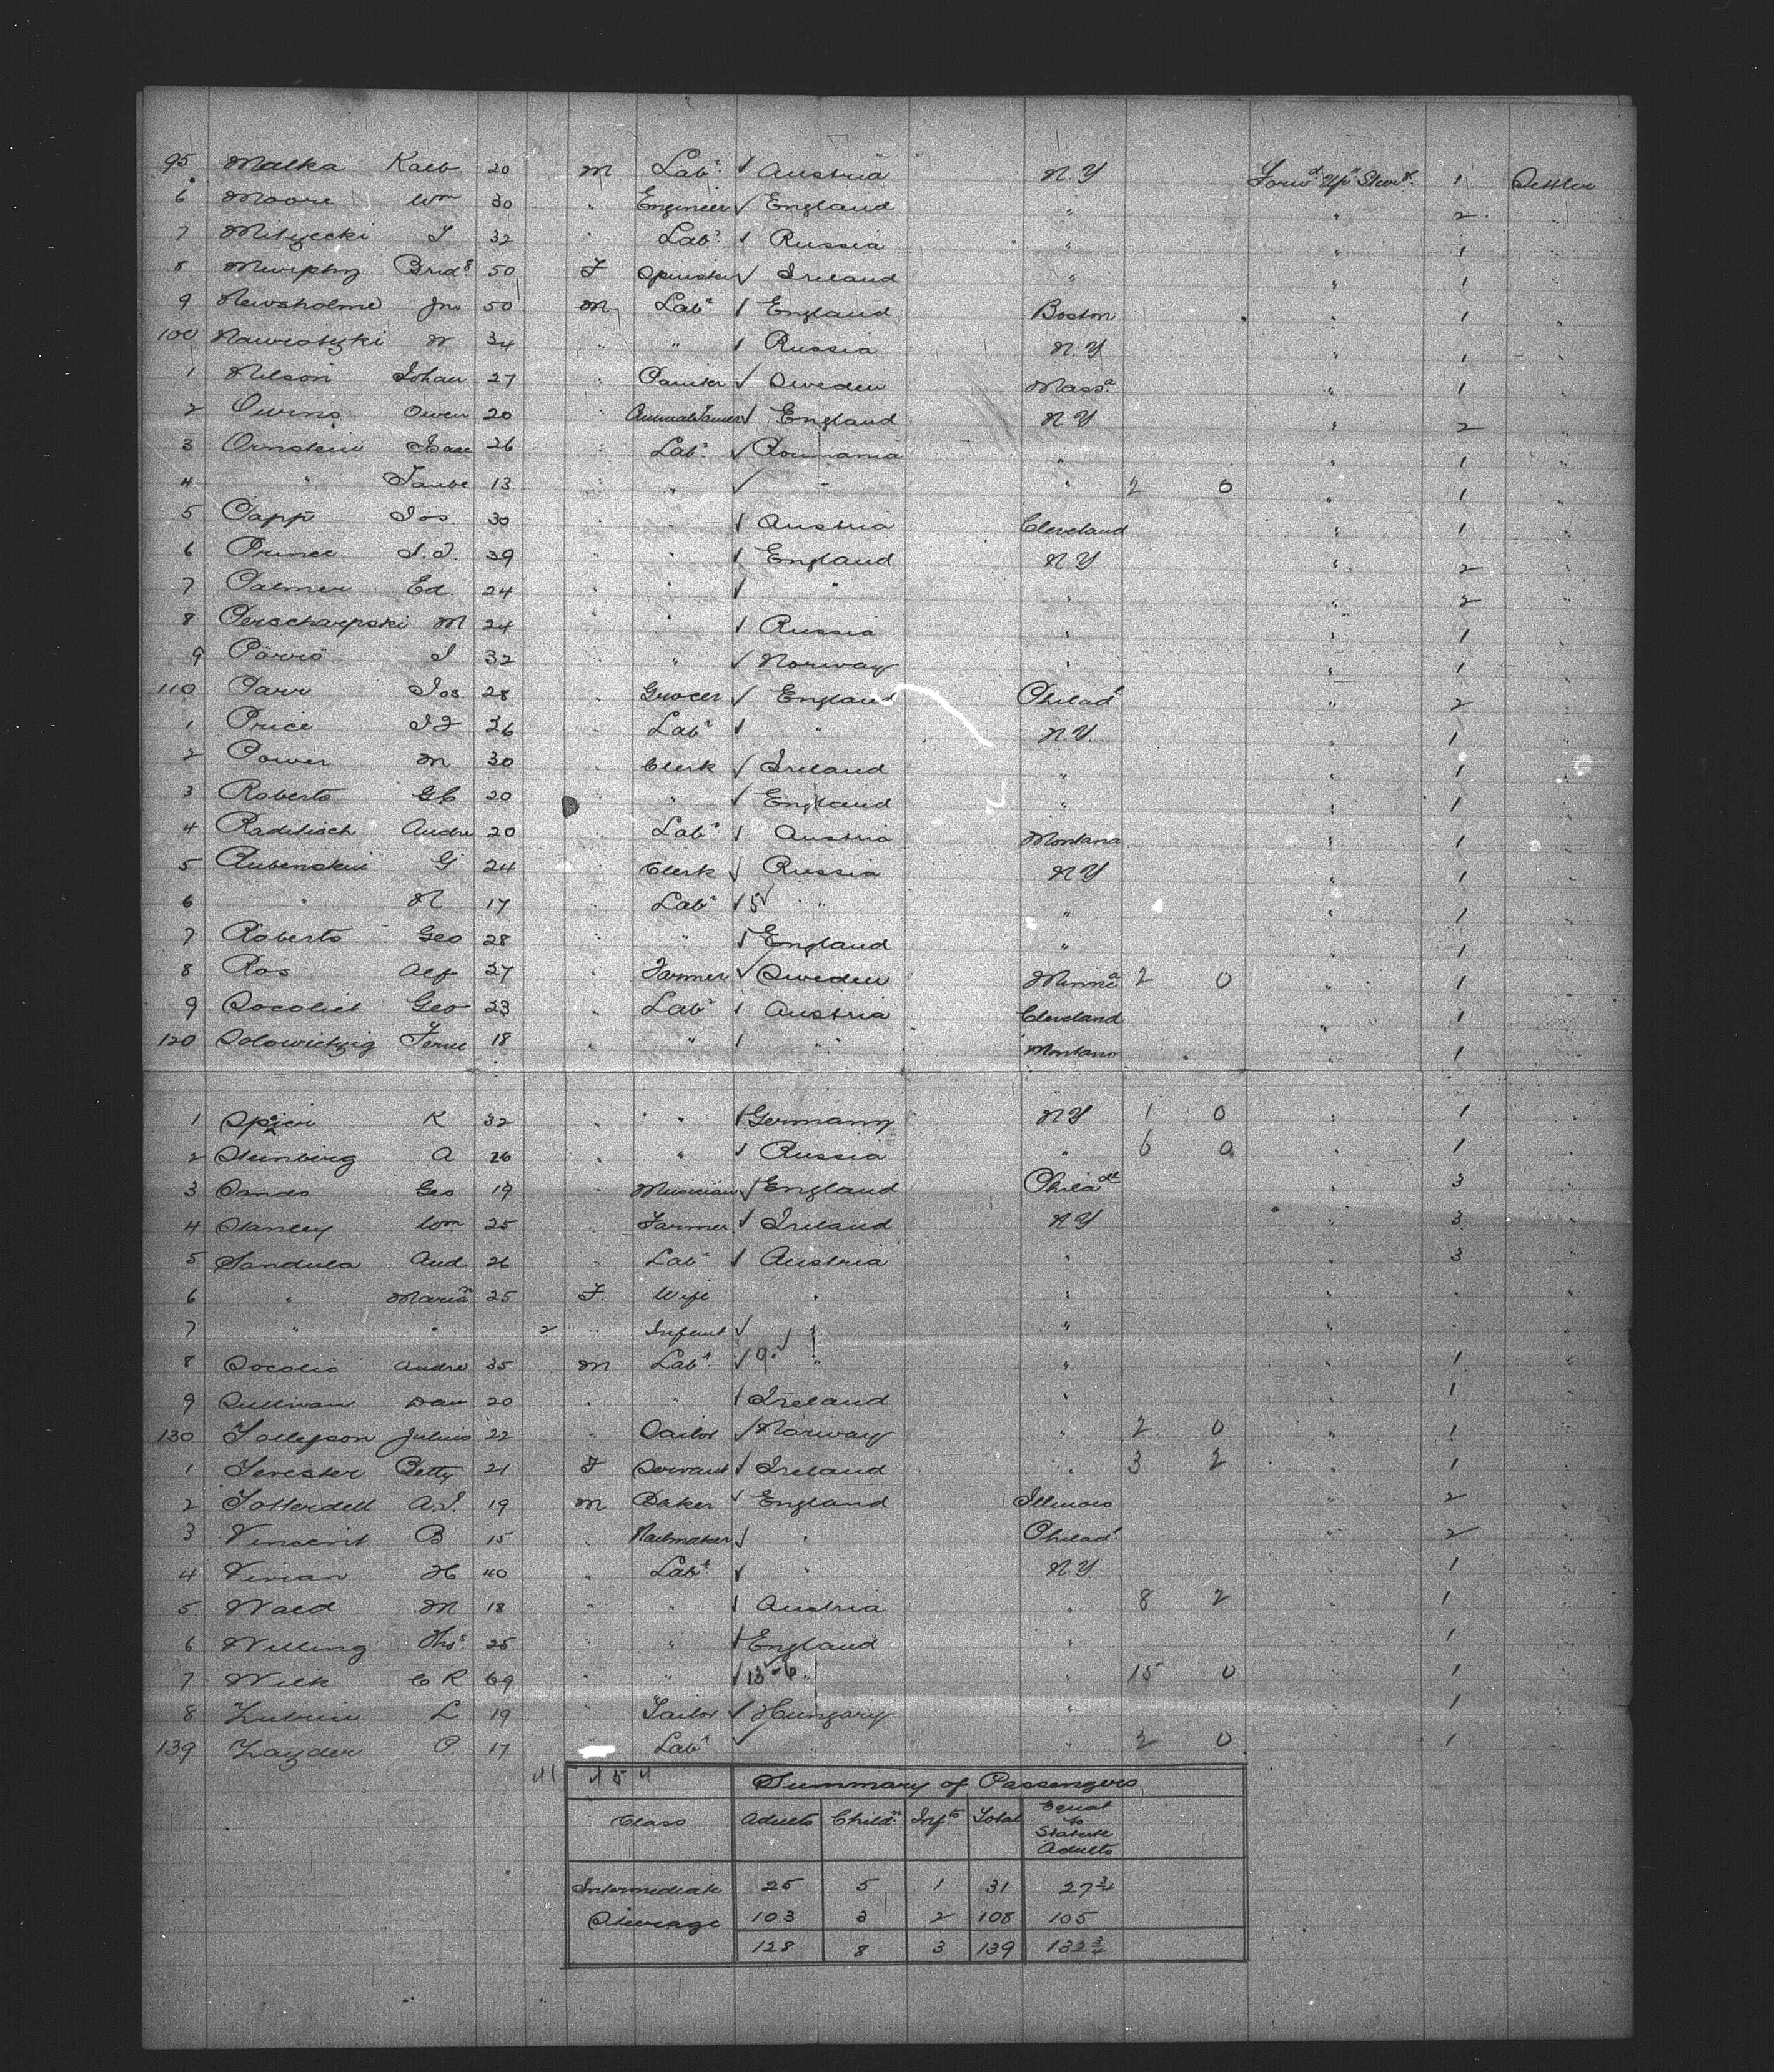 95 Malka Kalb 20 M Labr Austria N.Y Forwd Upr Sterge 1 Settler
6 Moore Wm 30 " Engineer England " " 2 "
7 Mityecki J 32 " Labr Russia " " 1
8 Murphy Bridt 50 F Spinster Ireland " " 1
9 Newsholme Jno 50 M Labr England Boston " 1 "
100 N 34 " " Russia N.Y " 1 "
1 Nelson Johan 27 " Painter Sweden Massa " 1 "
2 Owens Owen 20 " Animal Tamer England N.Y " 2 "
3 Ornstein Isaac 26 " Labr Roumania " " 1 "
4 " Taube 13 " " " " 2 0 " 1 "
5 Papp Jos. 30 " " Austria Cleveland " 1 "
6 Prince 39 " " England N.Y " 2 "
7 Palmer Ed. 24 " " " " " 2 "
8 Perscharpski M 24 " " Russia " " 1 "
9 J 32 " " Norway " " 1 "
110 Parr Jos. 28 " Grocer England Philada " 2 "
1 Price 36 " Labr " N.Y. " 1 "
2 Power M 30 " Clerk Ireland " " 1 "
3 Roberts 20 " " England " " 1 "
4 Raditisch Andre 20 " Labr Austria Montana " 1 "
5 Rubenstein G 24 " Clerk Russia N.Y " 1 "
6 " N 17 " Labr 5 " " " 1 "
7 Roberts Geo 28 " " England " " 1 "
8 Ros Alf 27 " Farmer Sweden Minna 2 0 " 1 "
9 Socolict Geo 23 " Labr Austria Cleveland " 1 "
120 Solowictzig 18 " " " Montana " 1 "
1 K 32 " " Germany N.Y 1 0 " 1 "
2 Steinberg A 26 " " Russia " 6 0 " 1 "
3 Sands Geo 19 " Musician England Philada " 3 "
4 Stanley Wm 25 " Farmer Ireland N.Y " 3 "
5 Sandula And 26 " Labr Austria " " 3 "
6 " Marian 25 F Wife " " " " "
7 " " 2 " Infant " " " "
8 Socolic Andre 35 M Labr 9 " " " 1 "
9 Sullivan Dan 20 " " Ireland " " 1 "
130 Tollefson Julius 22 " Sailor Norway " 2 0 " 1 "
1 Betty 21 F Servant Ireland " 3 2 " 1 "
2 Totterdell A.J. 19 M Baker England Illinois " 2 "
3 Vincent B 15 " Nailmaker " Philada " 2 "
4 Vivian H 40 " Labr " N.Y " 1 "
5 Wald M 18 " " Austria " 8 2 " 1 "
6 Willing Thos 25 " " England " " 1 "
7 Wilk C R 69 " " 13-6 " " 15 0 " 1 "
8 L 19 " Tailor Hungary " " 1 "
139 Zayder P. 17 Labr " " 2 0 " 1 "
Summary of Passengers
Class Adults Childn Infts Total Equal to Statute Adults
Intermediate 25 5 1 31 27 3/4
Steerage 103 3 2 108 105
128 8 3 139 132 3/4